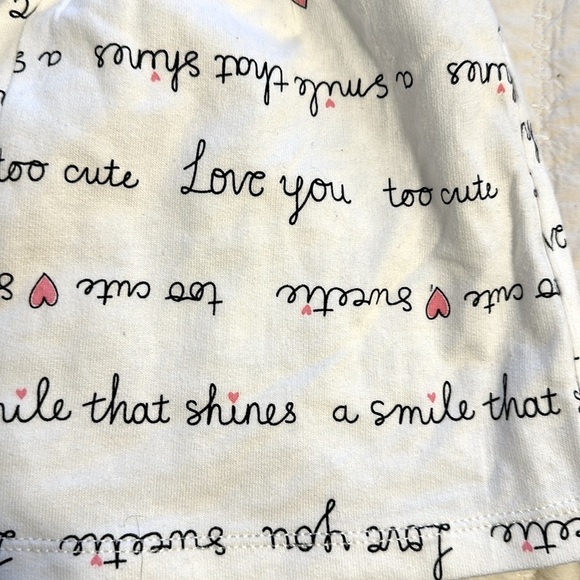 shines a smile that shines a
too cute Love you too cute
too cute sweetie too cute
smile that shines a smile that
sweetie Love you sweetie